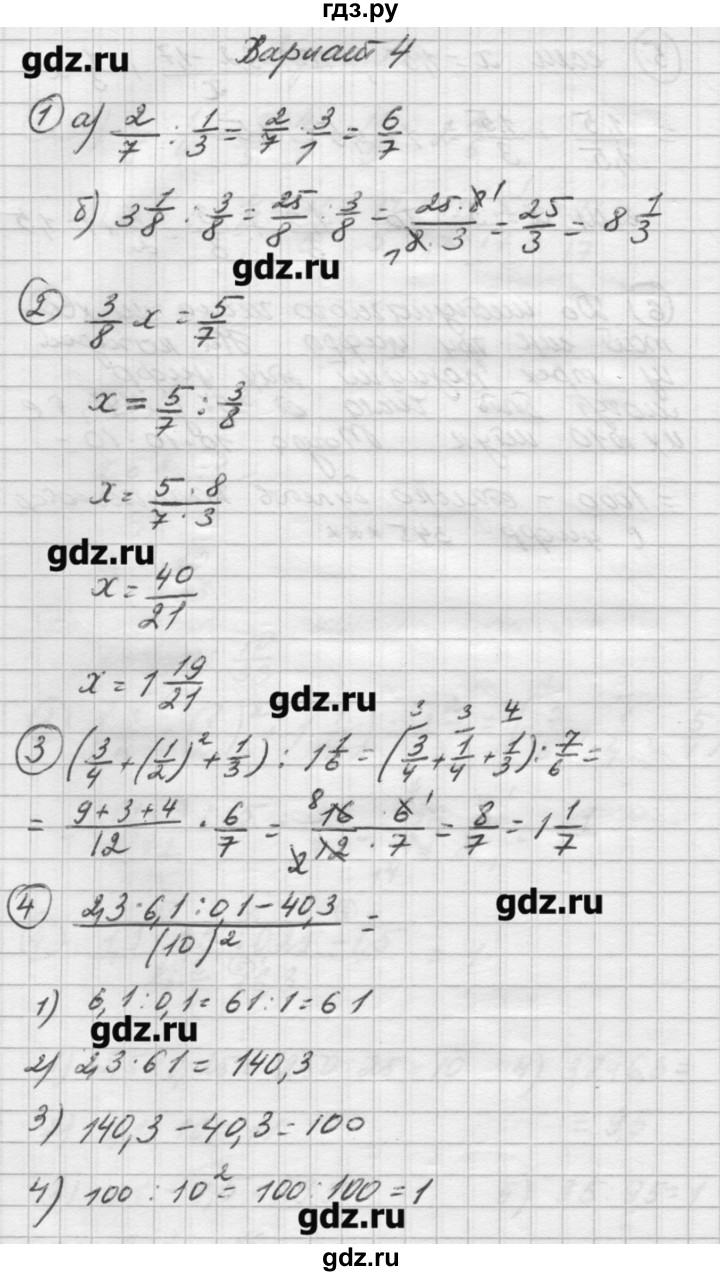 гдз.ру
gdz.ru
Вариант 4
1) а) 2/7 : 1/3 = 2/7 · 3/1 = 6/7
б) 3 1/8 : 3/8 = 25/8 : 3/8 = 25·8/8·3 = 25/3 = 8 1/3
gdz.ru
2) 3/8 x = 5/7
x = 5/7 : 3/8
x = 5·8/7·3
gdz.ru
x = 40/21
x = 1 19/21
gdz.ru
3) (3/4 + (1/2)² + 1/3) : 1 1/6 = (3/4 + 1/4 + 1/3) : 7/6 =
= 9+3+4/12 · 6/7 = 16·6/12·7 = 8/7 = 1 1/7
4) 2,3·6,1:0,1-40,3/(10)² =
gdz.ru
1) 6,1:0,1=61:1=61
gdz.ru
2) 2,3·61=140,3
3) 140,3-40,3=100
4) 100:10²=100:100=1
gdz.ru
gdz.ru